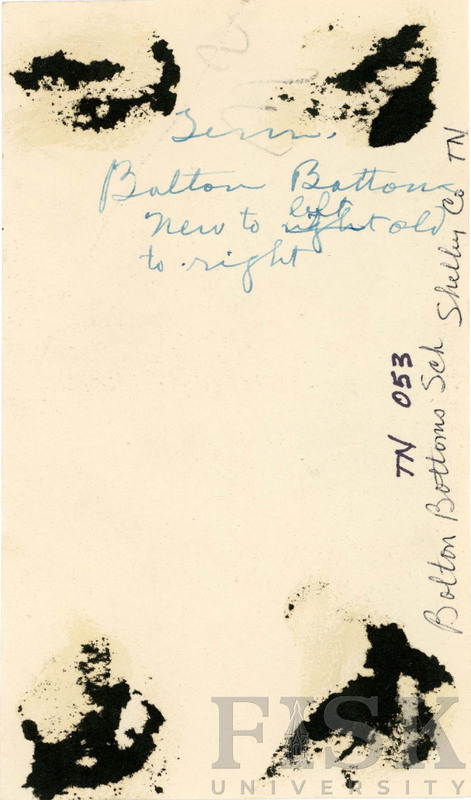 Tenn.
Bolton Bottoms
New to left old
to right
TN 053
Bolton Bottoms Sch Shelby Co TN
FISK
UNIVERSITY